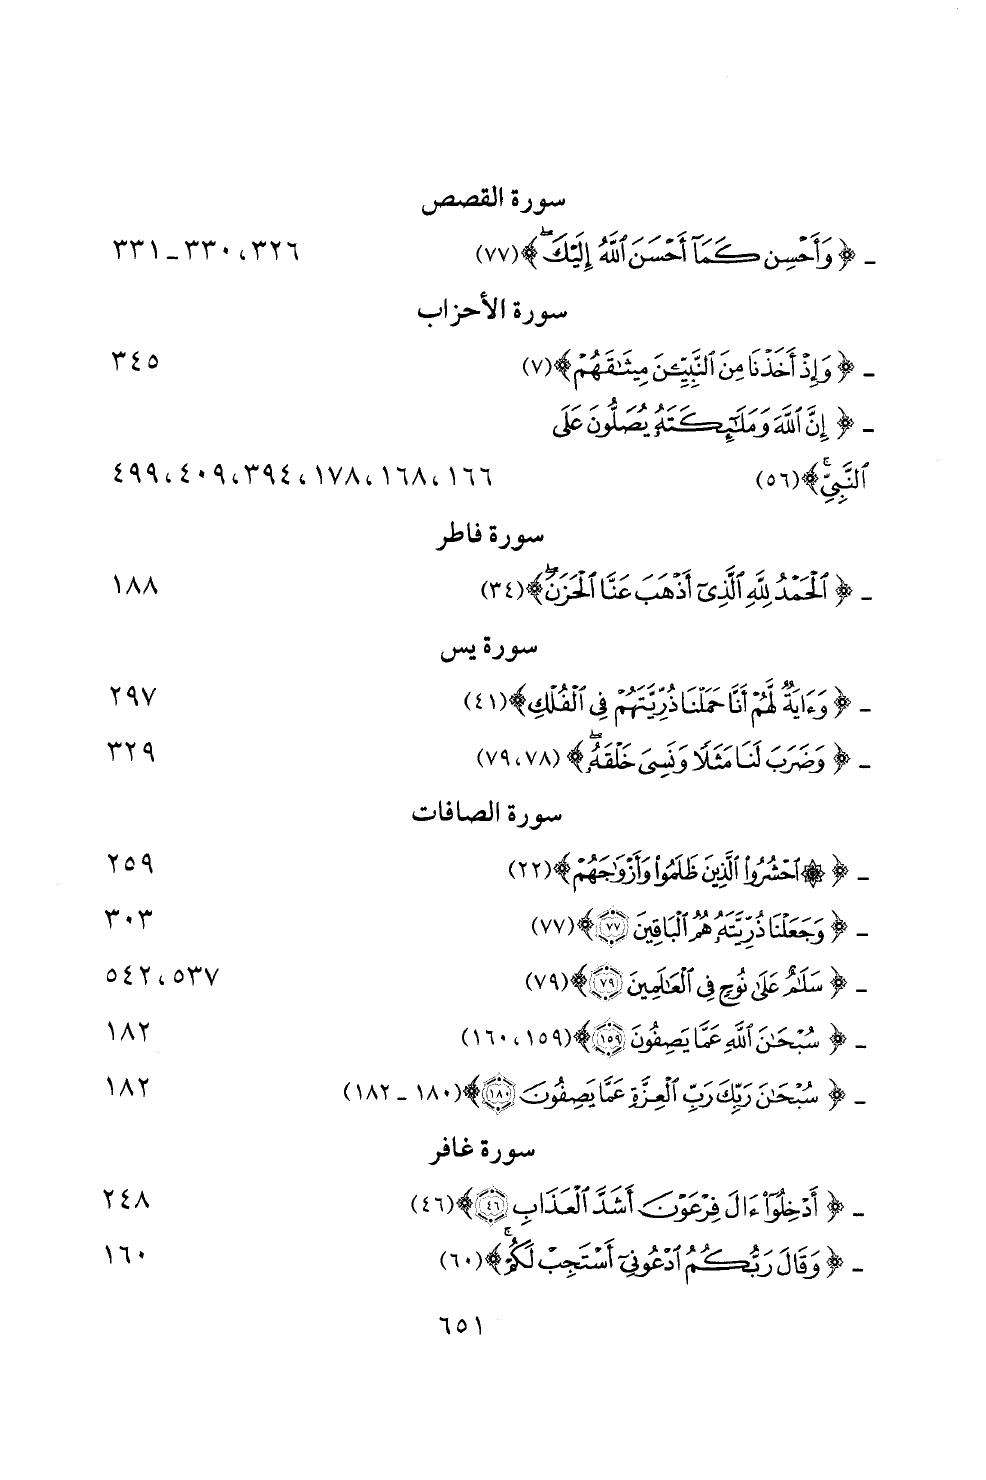 سورة القصص
ـ ﴿ وَأَحْسِن كَمَآ أَحْسَنَ ٱللَّهُ إِلَيْكَ ۖ ﴾ (٧٧) ٣٢٦، ٣٣٠ ـ ٣٣١
سورة الأحزاب
ـ ﴿ وَإِذْ أَخَذْنَا مِنَ ٱلنَّبِيِّـۧنَ مِيثَـٰقَهُمْ ﴾ (٧) ٣٤٥
ـ ﴿ إِنَّ ٱللَّهَ وَمَلَـٰٓئِكَتَهُۥ يُصَلُّونَ عَلَى
ٱلنَّبِيِّ ۚ ﴾ (٥٦) ١٦٦، ١٦٨، ١٧٨، ٣٩٤، ٤٠٩، ٤٩٩
سورة فاطر
ـ ﴿ ٱلْحَمْدُ لِلَّهِ ٱلَّذِىٓ أَذْهَبَ عَنَّا ٱلْحَزَنَ ۖ ﴾ (٣٤) ١٨٨
سورة يس
ـ ﴿ وَءَايَةٌ لَّهُمْ أَنَّا حَمَلْنَا ذُرِّيَّتَهُمْ فِى ٱلْفُلْكِ ﴾ (٤١) ٢٩٧
ـ ﴿ وَضَرَبَ لَنَا مَثَلًا وَنَسِىَ خَلْقَهُۥ ۖ ﴾ (٧٨، ٧٩) ٣٢٩
سورة الصافات
ـ ﴿ ۞ ٱحْشُرُوا۟ ٱلَّذِينَ ظَلَمُوا۟ وَأَزْوَٰجَهُمْ ﴾ (٢٢) ٢٥٩
ـ ﴿ وَجَعَلْنَا ذُرِّيَّتَهُۥ هُمُ ٱلْبَاقِينَ ٧٧ ﴾ (٧٧) ٣٠٣
ـ ﴿ سَلَـٰمٌ عَلَىٰ نُوحٍ فِى ٱلْعَـٰلَمِينَ ٧٩ ﴾ (٧٩) ٥٣٧، ٥٤٢
ـ ﴿ سُبْحَـٰنَ ٱللَّهِ عَمَّا يَصِفُونَ ١٥٩ ﴾ (١٥٩، ١٦٠) ١٨٢
ـ ﴿ سُبْحَـٰنَ رَبِّكَ رَبِّ ٱلْعِزَّةِ عَمَّا يَصِفُونَ ١٨٠ ﴾ (١٨٠ ـ ١٨٢) ١٨٢
سورة غافر
ـ ﴿ أَدْخِلُوٓا۟ ءَالَ فِرْعَوْنَ أَشَدَّ ٱلْعَذَابِ ٤٦ ﴾ (٤٦) ٢٤٨
ـ ﴿ وَقَالَ رَبُّكُمُ ٱدْعُونِىٓ أَسْتَجِبْ لَكُمْ ۚ ﴾ (٦٠) ١٦٠
٦٥١